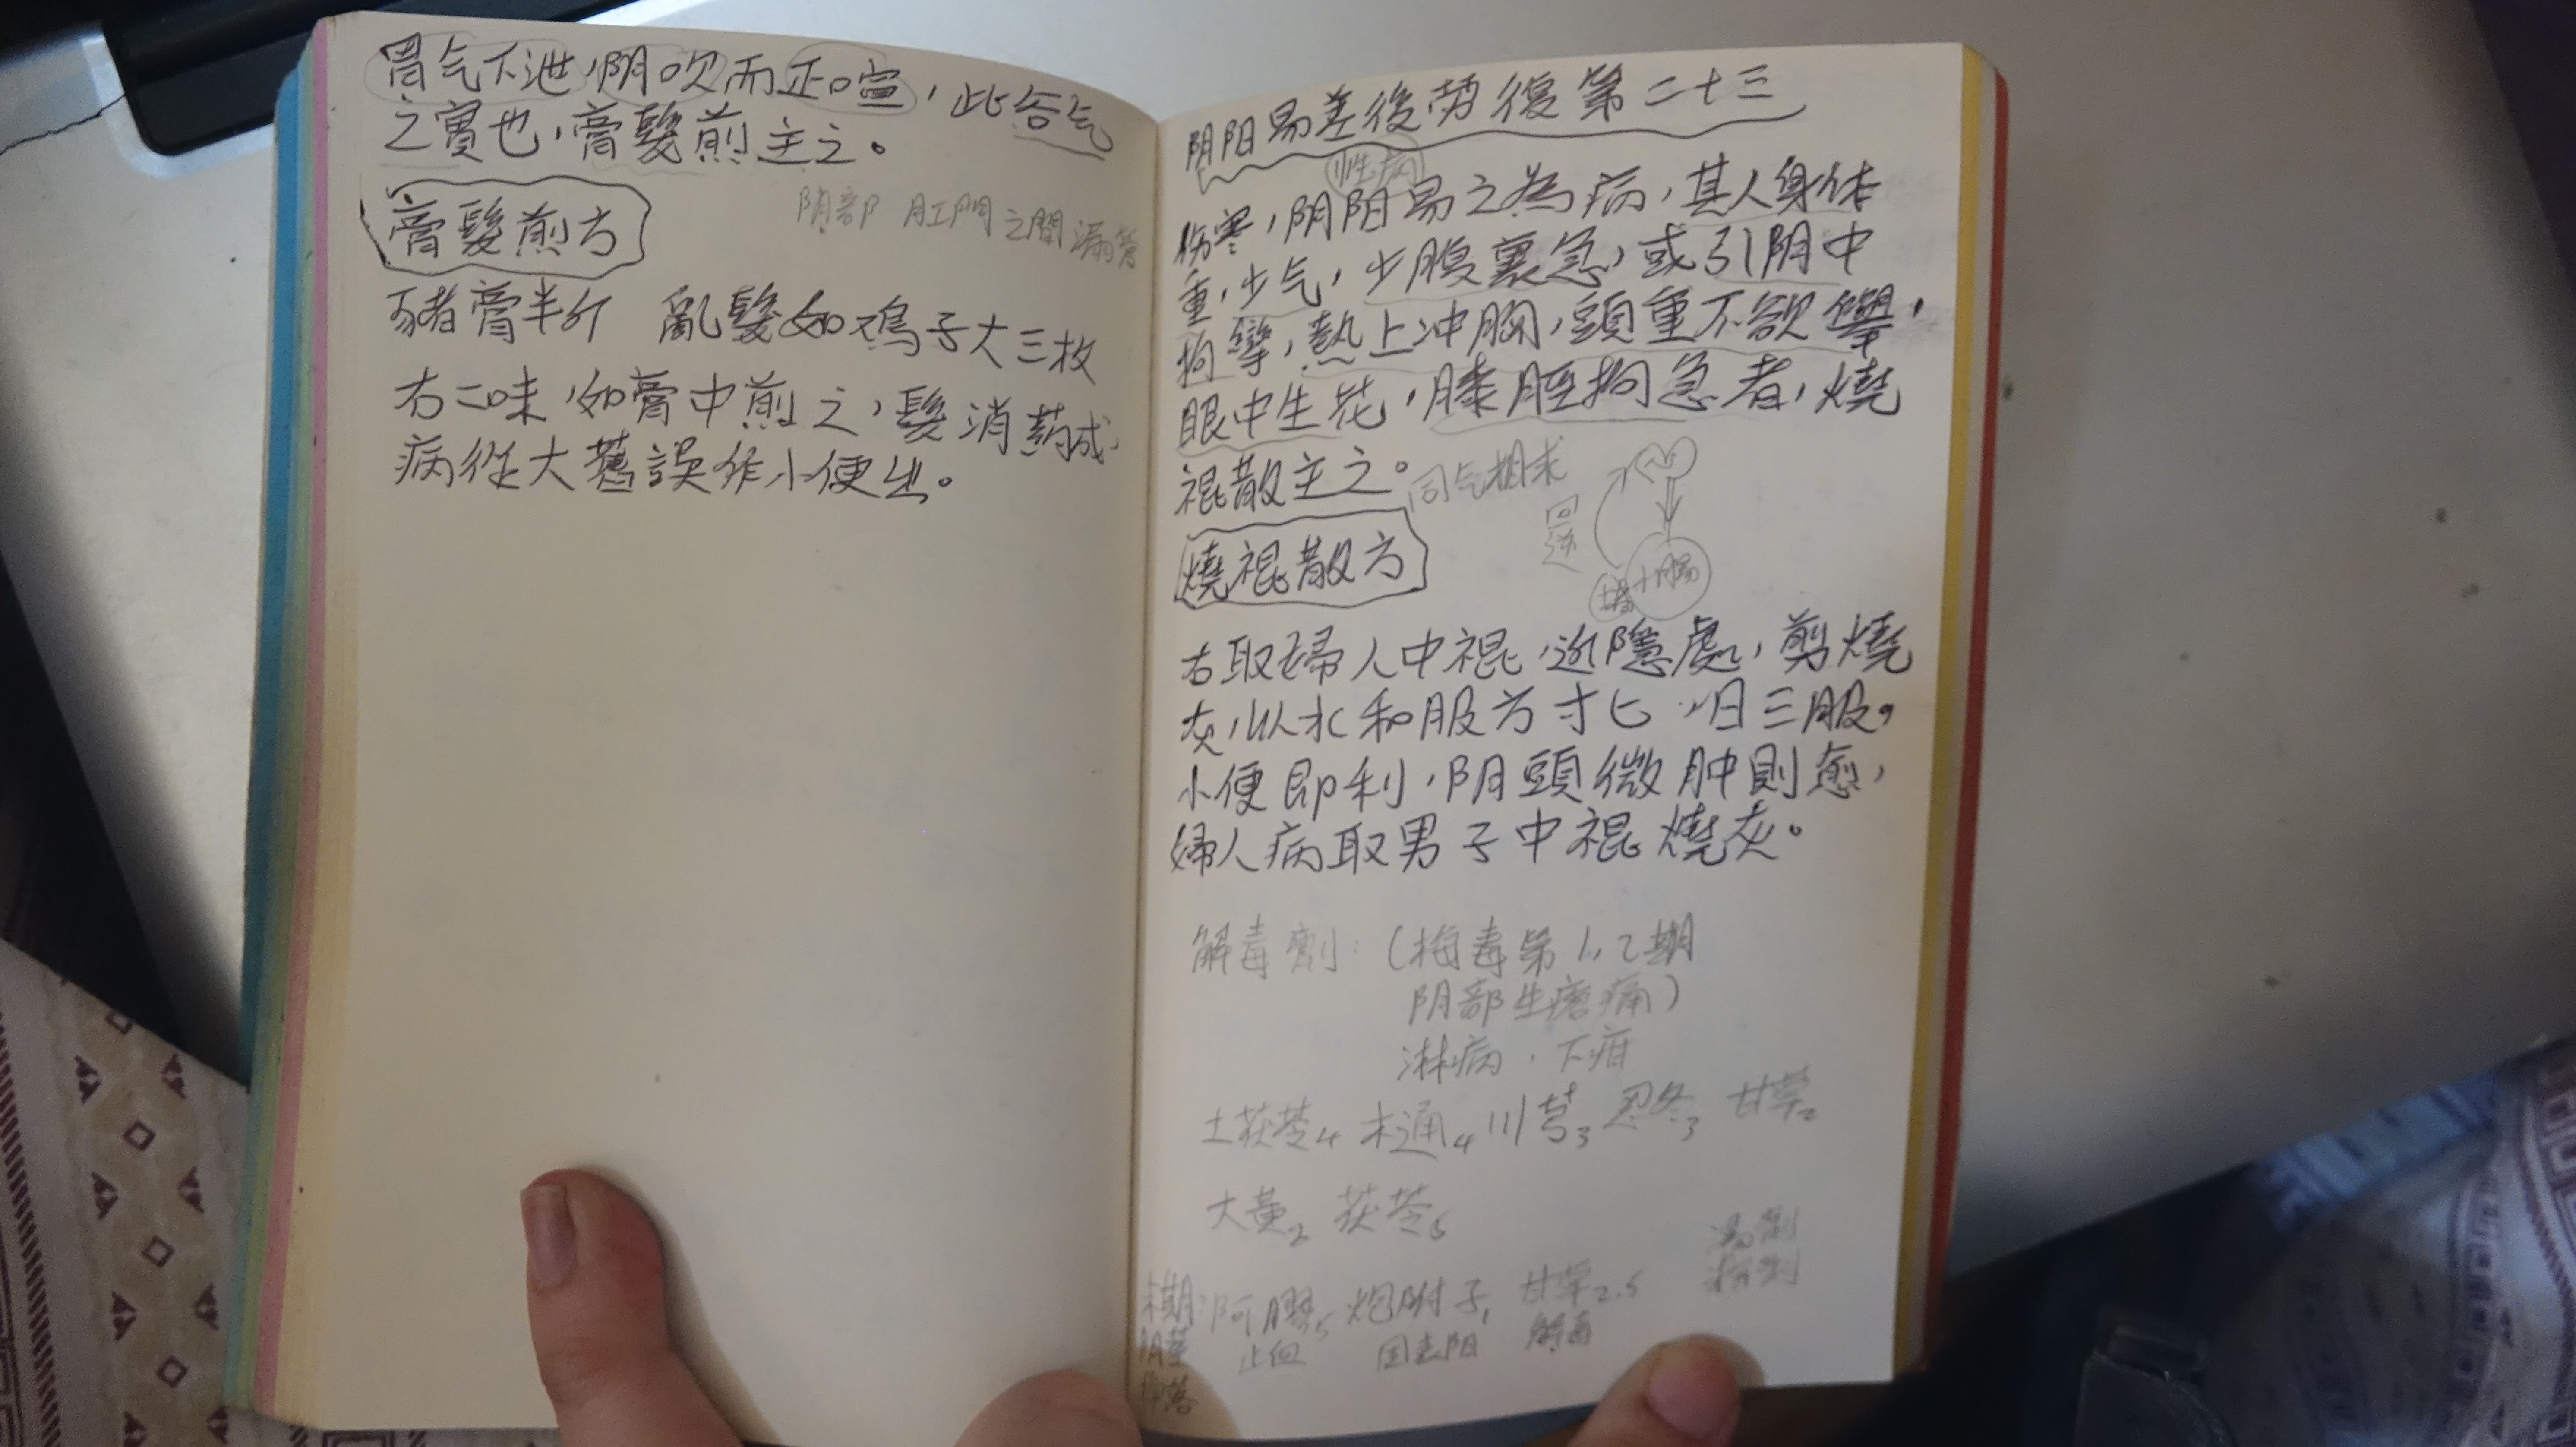 胃气下泄，阴吹而正喧，此谷气
之實也，膏髮煎主之。
膏髮煎方
阴部 肛門之間漏管
豬膏半斤 亂髮如鸡子大三枚
右二味，如膏中煎之，髮消药成
病從大舊誤作小便出。
阴阳易差後劳復第二十三
性病
伤寒，阴阳易之為病，其人身体
重，少气，少腹裏急，或引阴中
拘攣，熱上冲胸，頭重不欲舉，
眼中生花，膝脛拘急者，燒
裩散主之。
同气相求
回逆
小腸
燒裩散方
右取婦人中裩，近隱處，剪燒
灰，以水和服方寸匕，日三服。
小便即利，阴頭微肿則愈，
婦人病取男子中裩燒灰。
解毒劑：（梅毒第1,2期
阴部生瘡痛）
淋病，下疳
土茯苓4 木通4 川芎3 忍冬3 甘草2
大黄2 茯苓5
湯劑
末期：阿膠5 炮附子1 甘草2.5
阴茎 止血 固表阳 解毒
掉落